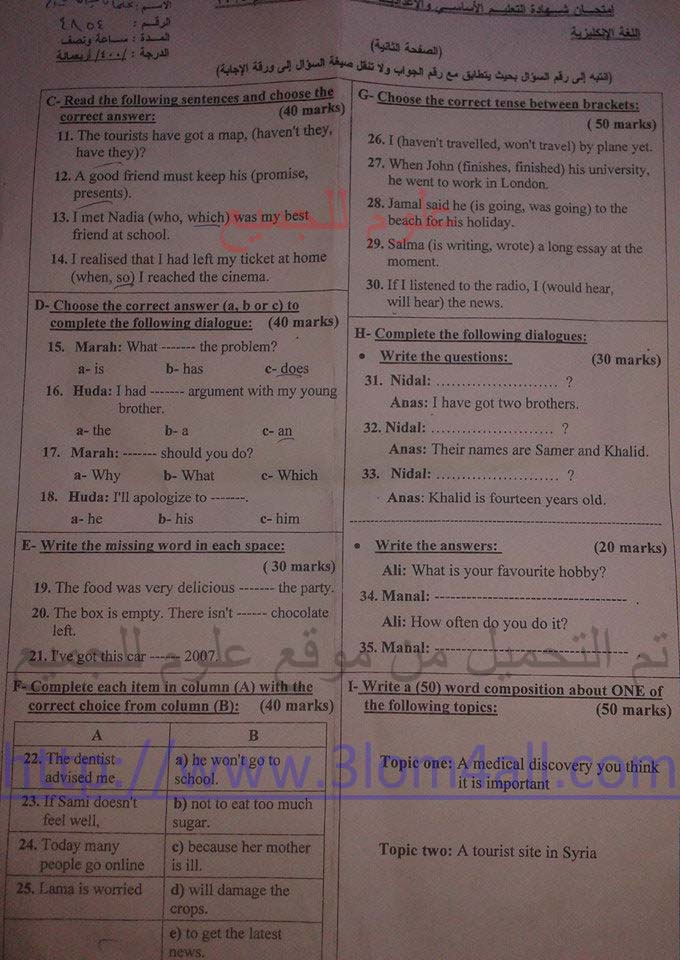 امتحان شهادة التعليم الأساسي
اللغة الإنكليزية
(الصفحة الثانية)
الاسم:
الرقم: ٤٨٠٥٤
المدة: ساعة ونصف
الدرجة: /٤٠٠/ أربعمائة
(انتبه إلى رقم السؤال بحيث يتطابق مع رقم الجواب ولا تنقل صيغة السؤال إلى ورقة الإجابة)
C- Read the following sentences and choose the
correct answer: (40 marks)
11. The tourists have got a map, (haven't they,
have they)?
12. A good friend must keep his (promise,
presents).
13. I met Nadia (who, which) was my best
friend at school.
14. I realised that I had left my ticket at home
(when, so) I reached the cinema.
D- Choose the correct answer (a, b or c) to
complete the following dialogue: (40 marks)
15. Marah: What ------- the problem?
a- is b- has c- does
16. Huda: I had ------- argument with my young
brother.
a- the b- a c- an
17. Marah: ------- should you do?
a- Why b- What c- Which
18. Huda: I'll apologize to -------.
a- he b- his c- him
E- Write the missing word in each space:
( 30 marks)
19. The food was very delicious ------- the party.
20. The box is empty. There isn't ------ chocolate
left.
21. I've got this car ------ 2007.
F- Complete each item in column (A) with the
correct choice from column (B): (40 marks)
A B
22. The dentist
advised me
a) he won't go to
school.
23. If Sami doesn't
feel well,
b) not to eat too much
sugar.
24. Today many
people go online
c) because her mother
is ill.
25. Lama is worried
d) will damage the
crops.
e) to get the latest
news.
G- Choose the correct tense between brackets:
( 50 marks)
26. I (haven't travelled, won't travel) by plane yet.
27. When John (finishes, finished) his university,
he went to work in London.
28. Jamal said he (is going, was going) to the
beach for his holiday.
29. Salma (is writing, wrote) a long essay at the
moment.
30. If I listened to the radio, I (would hear,
will hear) the news.
H- Complete the following dialogues:
• Write the questions: (30 marks)
31. Nidal: ...................... ?
Anas: I have got two brothers.
32. Nidal: ...................... ?
Anas: Their names are Samer and Khalid.
33. Nidal: ...................... ?
Anas: Khalid is fourteen years old.
• Write the answers: (20 marks)
Ali: What is your favourite hobby?
34. Manal: --------------------------------
Ali: How often do you do it?
35. Manal: --------------------------------
I- Write a (50) word composition about ONE of
the following topics: (50 marks)
Topic one: A medical discovery you think
it is important
Topic two: A tourist site in Syria
علوم للجميع
تم التحميل من موقع علوم للجميع
http://www.3lom4all.com